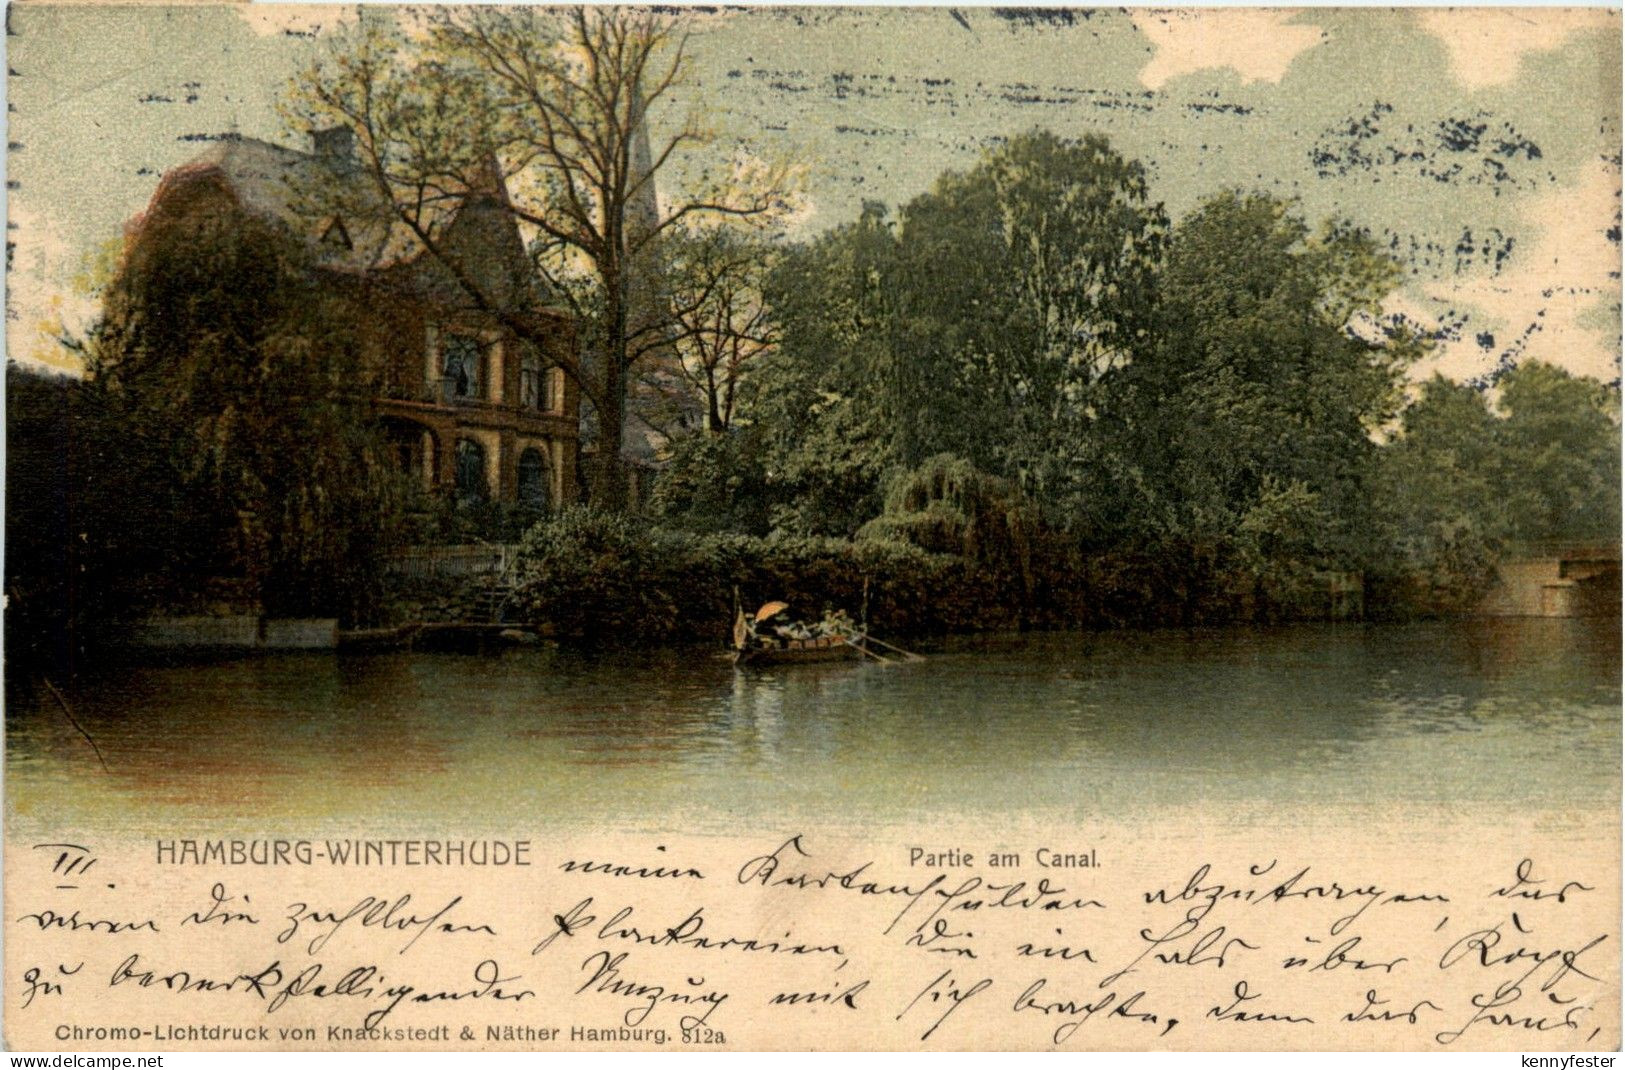 HAMBURG-WINTERHUDE
Partie am Canal.
III. meine Kartenschulden abzutragen, das
waren die zahllosen Plackereien, die ein Hals über Kopf
zu bewerkstelligender Umzug mit sich brachte, denn das Haus,
Chromo-Lichtdruck von Knackstedt & Näther Hamburg. 812a
delcampe.net
kennyfester